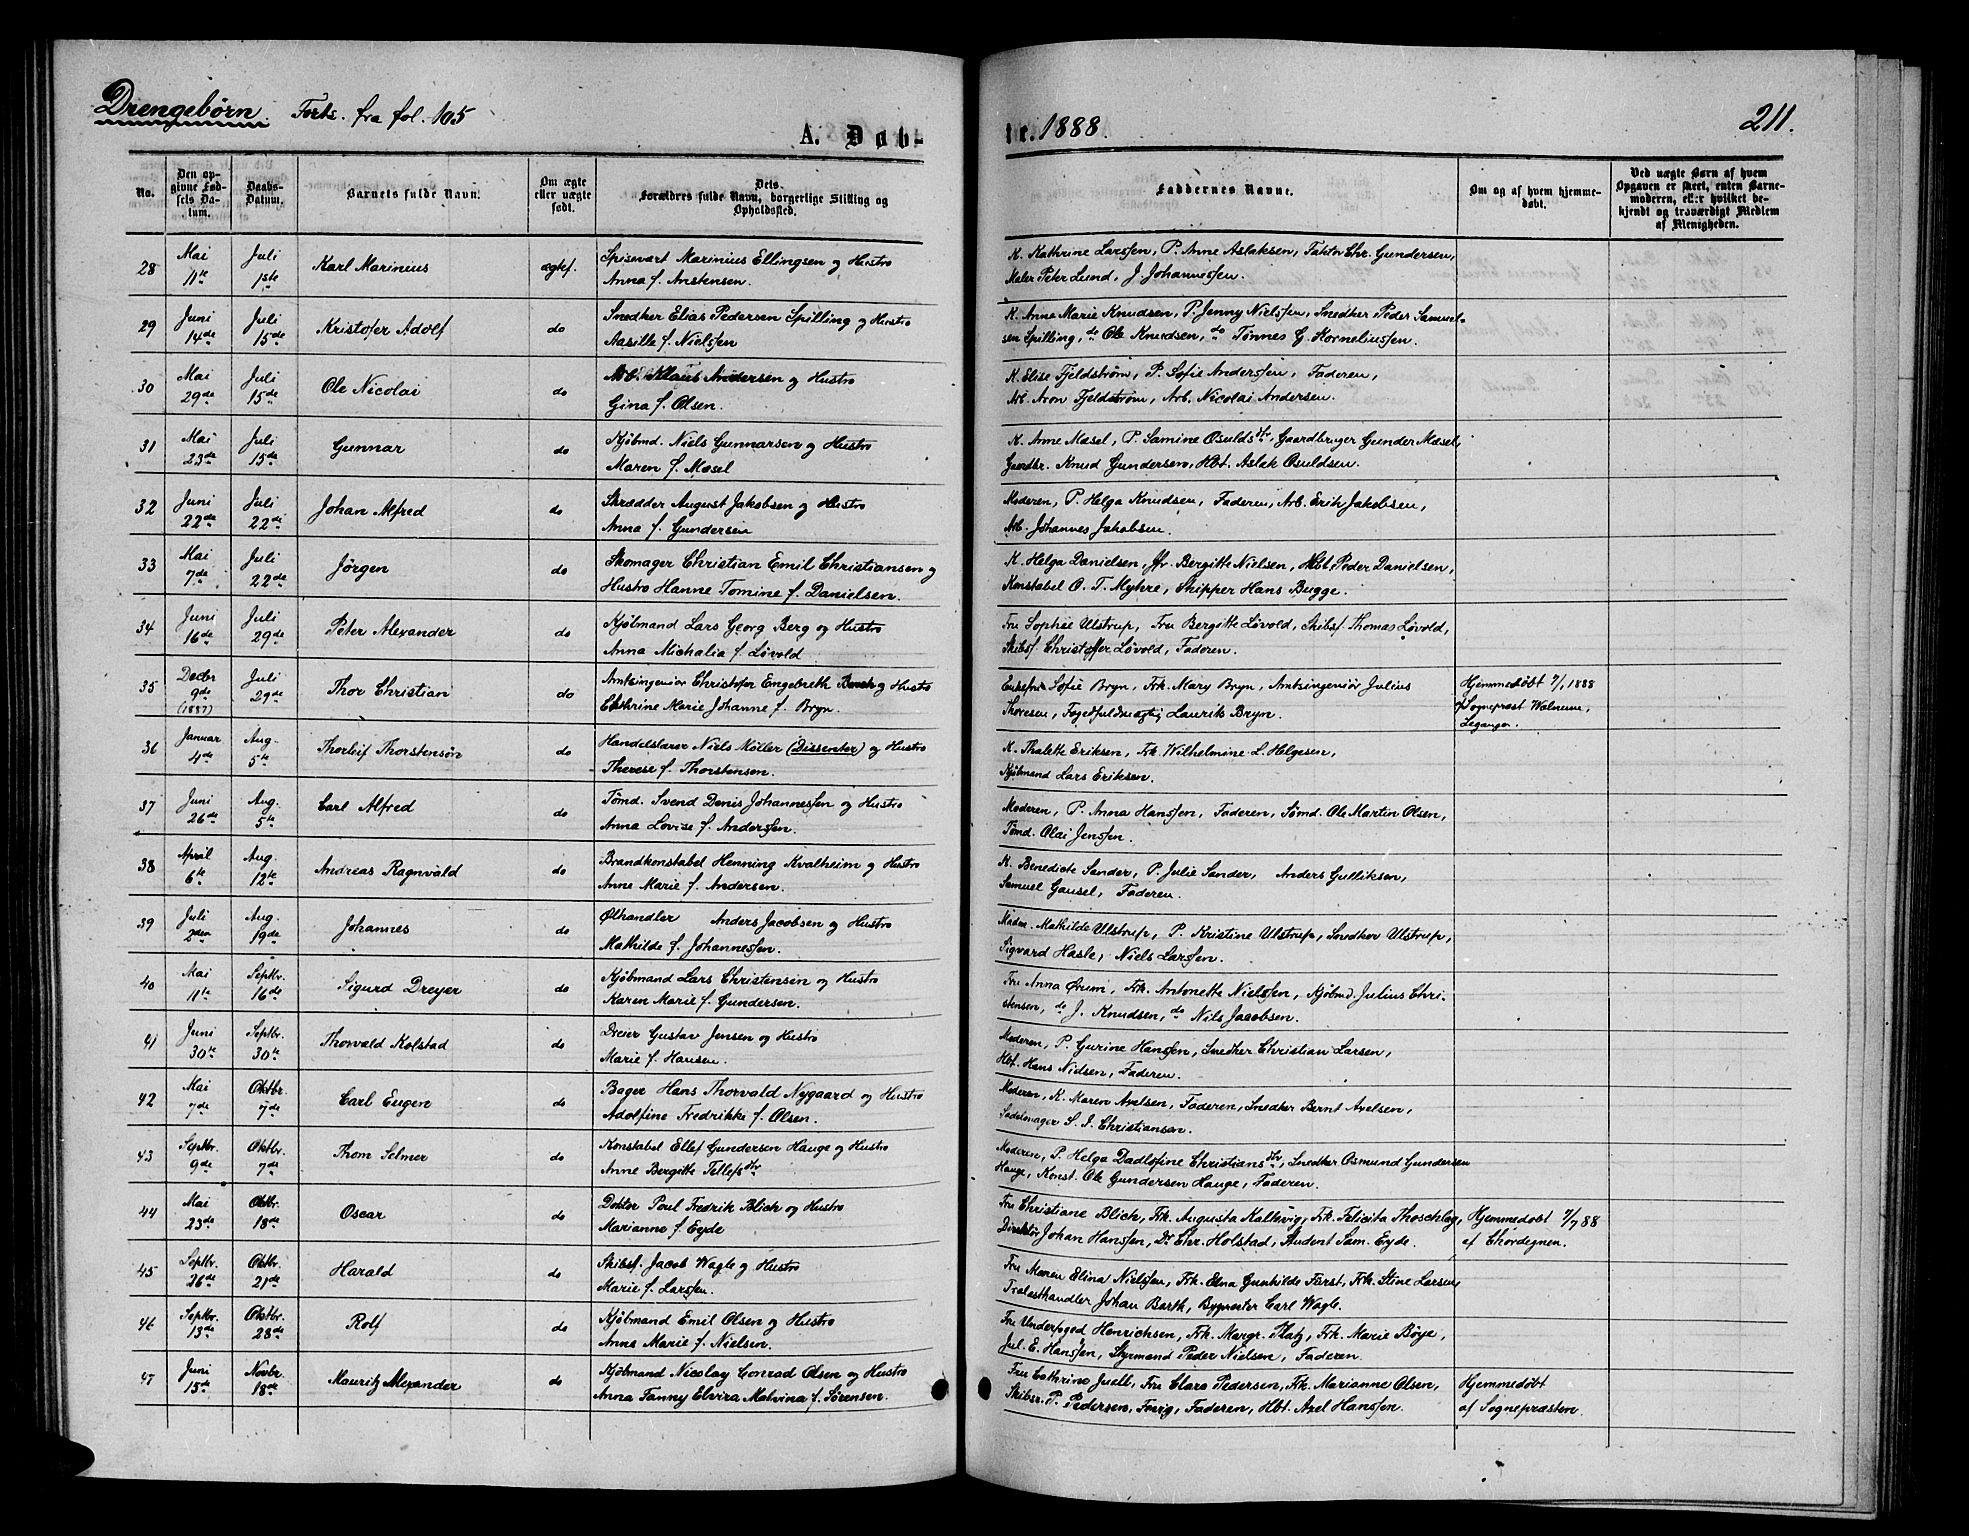 Drengebørn. Forts. fra fol. 105
A. Døb-
te. 1888.
211.
No.
Den op-
givne Fød-
sels Da-
tum.
Daabs-
Datum.
Barnets fulde Navn.
Om ægte
eller uægte
født.
Dets
Forældres fulde Navn, borgerlige Stilling og
Opholdssted.
Faddernes Navne.
Om og af hvem hjemme-
døbt.
Ved uægte Børn af hvem
Opgaven er skeet, enten Barne-
moderen, eller hvilket be-
kjendt og troværdigt Medlem
af Menigheden.
28 Mai 11te Juli 1ste Karl Marinius ægtef. Spisevært Marinius Ellingsen og Hustro
Anna f. Anstensen.
K. Kathrine Larssen, P. Anne Aslaksen, Faktor Chr. Gundersen,
Maler Peter Lund, J. Johannessen.
29 Juni 14de Juli 15de Kristofer Adolf do Snedker Elias Pedersen Spilling og Hustro
Aasille f. Nielssen
K. Anne Marie Knudsen, P. Jenny Nielssen, Snedker Peder Samuel-
sen Spilling, do Ole Knudsen, do Tønnes G. Korneliussen.
30 Mai 29de Juli 15de Ole Nicolai do Arb. Klaus Andersen og Hustro
Gina f. Olsen.
K. Elise Fjeldstrøm, P. Sofie Anderssen, Faderen,
Arb. Aron Fjeldstrøm, Arb. Nicolai Andersen.
31 Mai 23de Juli 15de Gunnar do Kjøbmd. Niels Gunnarsen og Hustro
Maren f. Mæsel
K. Anne Mæsel, P. Samine Osuldsdtr, Gaardbruger Gunder Mæsel,
Gaardbr. Knud Gundersen, Hbt. Aslak Osuldsen.
32 Juni 22de Juli 22de Johan Alfred do Skrædder August Jakobsen og Hustro
Anna f. Gundersen
Moderen, P. Helga Knudsen, Faderen, Arb. Erik Jakobsen,
Arb. Johannes Jakobsen.
33 Mai 7de Juli 22de Jörgen do Skomager Christian Emil Christiansen og
Hustro Hanne Tomine f. Danielsen.
K. Helga Danielsen, Jfr. Bergitte Nielsen, Hbt. Peder Danielsen,
Konstabel O. T. Myhre, Skipper Hans Bugge.
34 Juni 16de Juli 29de Peter Alexander do Kjøbmand Lars Georg Berg og Hustro
Anna Michalia f. Løvold
Fru Sophie Ulstrup, Fru Bergitte Lövold, Skibsf. Thomas Lövold,
Skibsf. Christoffer Lövold, Faderen.
35 Decbr 9de (1887) Juli 29de Thor Christian do Amtsingeniør Christofer Engebreth og Hustro
Cathrine Marie Johanne f. Bryn.
Enkefru Sofie Bryn, Frk. Mary Bryn, Amtsingeniør Julius
Thoresen, Fogedfuldmægtig Laurits Bryn.
Hjemmedøbt 7/1 1888
af Sogneprest Walnum,
Leganger.
36 Januar 4de Aug. 5te Thorleif Thorstensön do Handelslærer Niels Møller (Dissenter) og Hustro
Therese f. Thorstensen.
K. Thalette Eriksen, Frk. Wilhelmine L. Helgesen,
Kjöbmand Lars Eriksen.
37 Juni 26de Aug. 5te Carl Alfred do Tömd. Svend Denis Johannessen og Hustro
Anna Lovise f. Anderssen.
Moderen, P. Anna Hanssen, Faderen, Tömd. Ole Martin Olsen,
Tömd. Olai Jenssen.
38 April 6te Aug. 12te Andreas Ragnvald do Brandkonstabel Henning Kvalheim og Hustro
Anne Marie f. Andersen.
K. Benedicte Sander, P. Julie Sander, Anders Gulliksen,
Samuel Gausel, Faderen.
39 Juli 2den Aug. 19de Johannes do Ølhandler Anders Jacobsen og Hustro
Mathilde f. Johannessen.
Madm. Mathilde Ulstrup, P. Kristine Ulstrup, Snedker Ulstrup,
Sigvard Hasle, Niels Larssen.
40 Mai 11te Septbr. 16de Sigurd Dreyer do Kjöbmand Lars Christensen og Hustro
Karen Marie f. Gundersen.
Fru Anna Ørum, Frk. Antonette Nielssen, Kjöbmd. Julius Chri-
stensen, do J. Knudsen, do Nils Jacobsen.
41 Juni 30te Septbr. 30te Thorvald Kolstad do Dreier Gustav Jensen og Hustro
Marie f. Hansen.
Moderen, P. Gurine Hanssen, Snedker Christian Larsen,
Hbt. Hans Nielsen, Faderen.
42 Mai 7de Oktbr. 7de Carl Eugen do Bager Hans Thorvald Nygaard og Hustro
Adolfine Fredrikke f. Olsen.
Moderen, K. Maren Axelsen, Faderen, Snedker Bernt Axelsen,
Sadelmager S. J. Christiansen.
43 Septbr. 9de Oktbr. 7de Thom Selmer do Konstabel Ellef Gundersen Hauge og Hustro
Anne Bergitte Tellefsdtr
Moderen, P. Helga Dadlofine Christiansdtr, Snedker Osmund Gundersen
Hauge, Konst. Ole Gundersen Hauge, Faderen.
44 Mai 23de Oktbr. 18de Oscar do Doktor Poul Fredrik Blich og Hustro
Marianne f. Eyde
Fru Christiane Blich, Frk. Augusta Kallevig, Frk. Felicita Thoschlag,
Direktör Johan Hanssen, Dr Chr. Holstad, Student Sam. Eyde.
Hjemmedøbt 7/7 88
af Chordegnen.
45 Septbr. 26de Oktbr. 21de Harald do Skibsf. Jacob Wagle og Hustro
Marie f. Larssen.
Fru Maren Elina Nielssen, Frk. Edna Gunhilde Först, Frk. Stine Larsen,
Trælasthandler Johan Barth, Bygmester Carl Wagle.
46 Septbr. 13de Oktbr. 28de Rolf do Kjöbmand Emil Olsen og Hustro
Anna Marie f. Nielsen.
Fru Underfoged Henrichsen, Frk. Margr. Platz, Frk. Marie Böye,
Jul. E. Hanssen, Styrmand Peder Nielsen, Faderen.
47 Juni 15de Novbr. 18de Mauritz Alexander do Kjöbmand Nicolay Conrad Olsen og Hustro
Anna Fanny Elvira Malvina f. Sörensen.
Fru Cathrine Juell, Fru Clara Pedersen, Frk. Marianne Olsen,
Skibsr. P. Pedersen, Faderen, Hbt. Axel Hanssen.
Hjemmedøbt
af Sognepræsten.